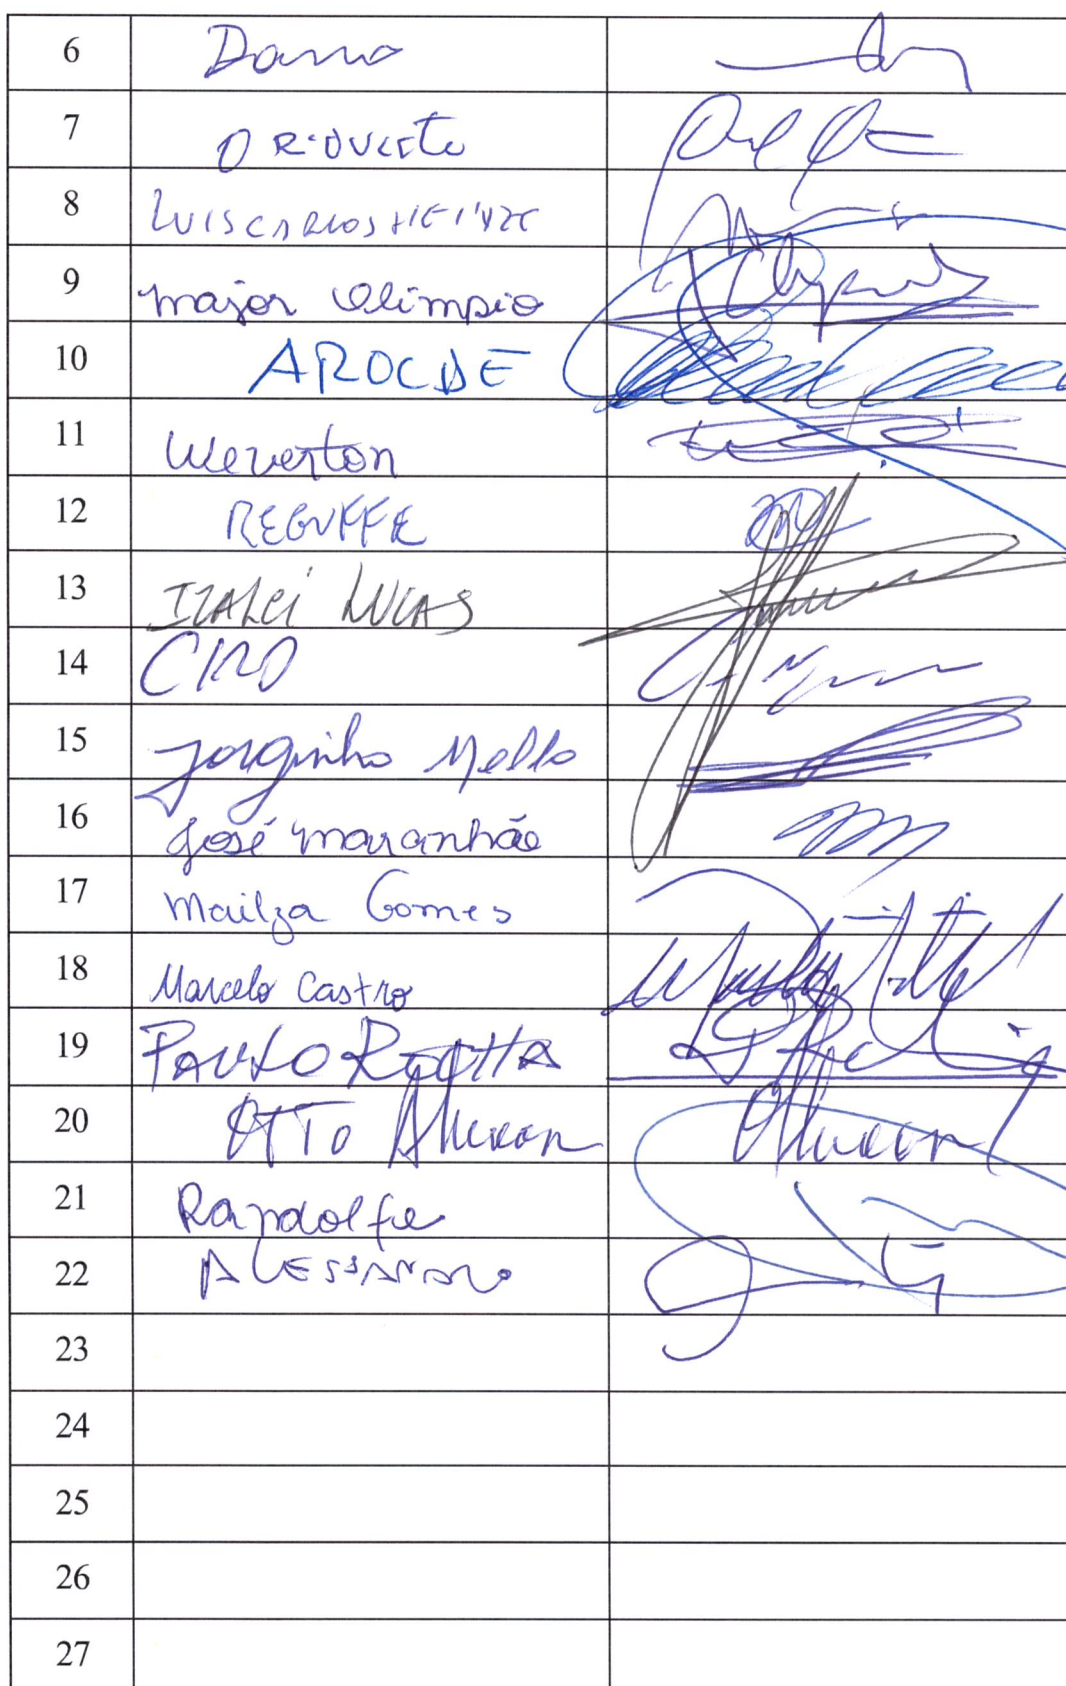 6 Dario
7 ORIOVISTO
8 LUIS CARLOS HEINZE
9 Major Olimpio
10 AROLDE
11 Weverton
12 REGUFFE
13 IZALCI LUCAS
14 CIRO
15 Jorginho Mello
16 José Maranhão
17 Mailza Gomes
18 Marcelo Castro
19 PAULO ROCHA
20 OTTO Alencar
21 Randolfe
22 ALESSANDRO
23
24
25
26
27